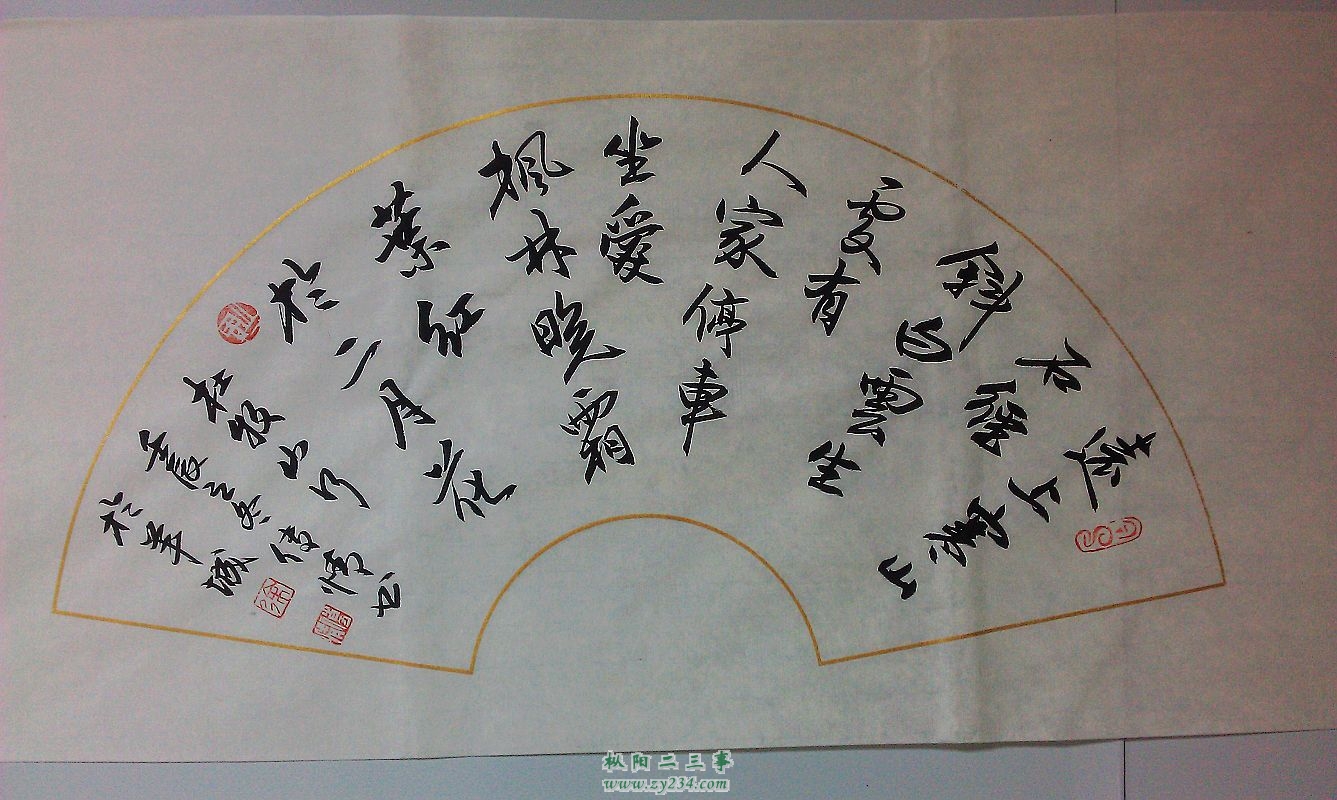 遠上寒山
石徑
斜白雲生
處有
人家停車
坐愛
楓林晚霜
葉紅
於二月花
杜牧山行
壬辰之冬 情書
於羊城
徐
枞阳二三事
www.zy234.com